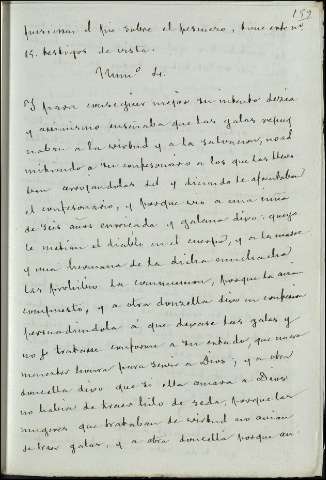 159
pusieran el pie sobre el pesquero, tiene este nº
15. testigos de vista.
Num.º 4.
Y para conseguir mejor su intento decia
y asimismo enseñaba que las galas repug
naban a la virtud y a la salvacion, no ad
mitiendo a su confesonario a los que las lleva
ban arrojandolas del y diciendo le afrentaban
el confesonario, y porque vio a una niña
de seis años enrizada y galana dijo: que ya
le metian el diablo en el cuerpo, y a la madre
y una hermana de la dicha muchacha
las prohibio la comunion, porque la avian
compuesto, y a otra donzella dijo en confesion
persuadiendola a que dejase las galas y
no se tratase conforme a su estado, que mas
menester havia para servir a Dios; y a otra
doncella dijo que si ella amara a Dios
no habia de traer hilo de seda, porque las
mugeres que trataban de virtud no avian
de traer galas, y a otra doncella porque an-